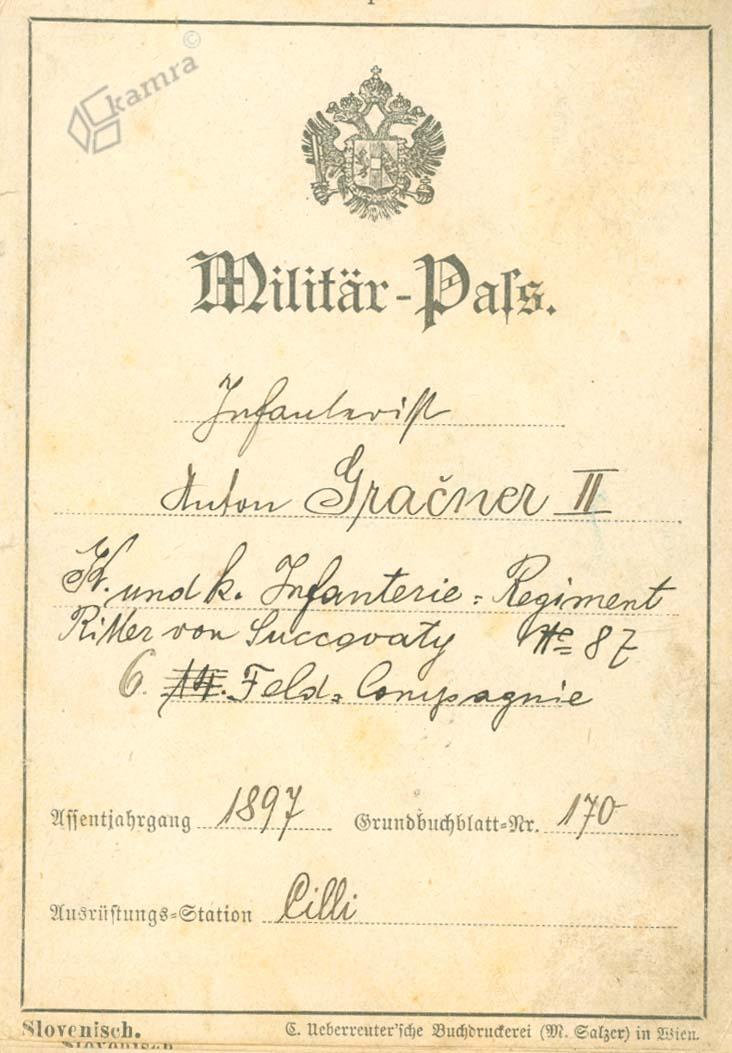 kamra ©
Militär-Paſs.
Infanterist
Anton Gračner II
K. und k. Infanterie = Regiment
Ritter von Succovaty № 87
6. 14. Feld = Compagnie
Aſſentjahrgang 1897 Grundbuchblatt-Nr. 170
Ausrüſtungs-Station Cilli
Slovenisch. C. Ueberreuter'ſche Buchdruckerei (M. Salzer) in Wien.
Slovenisch